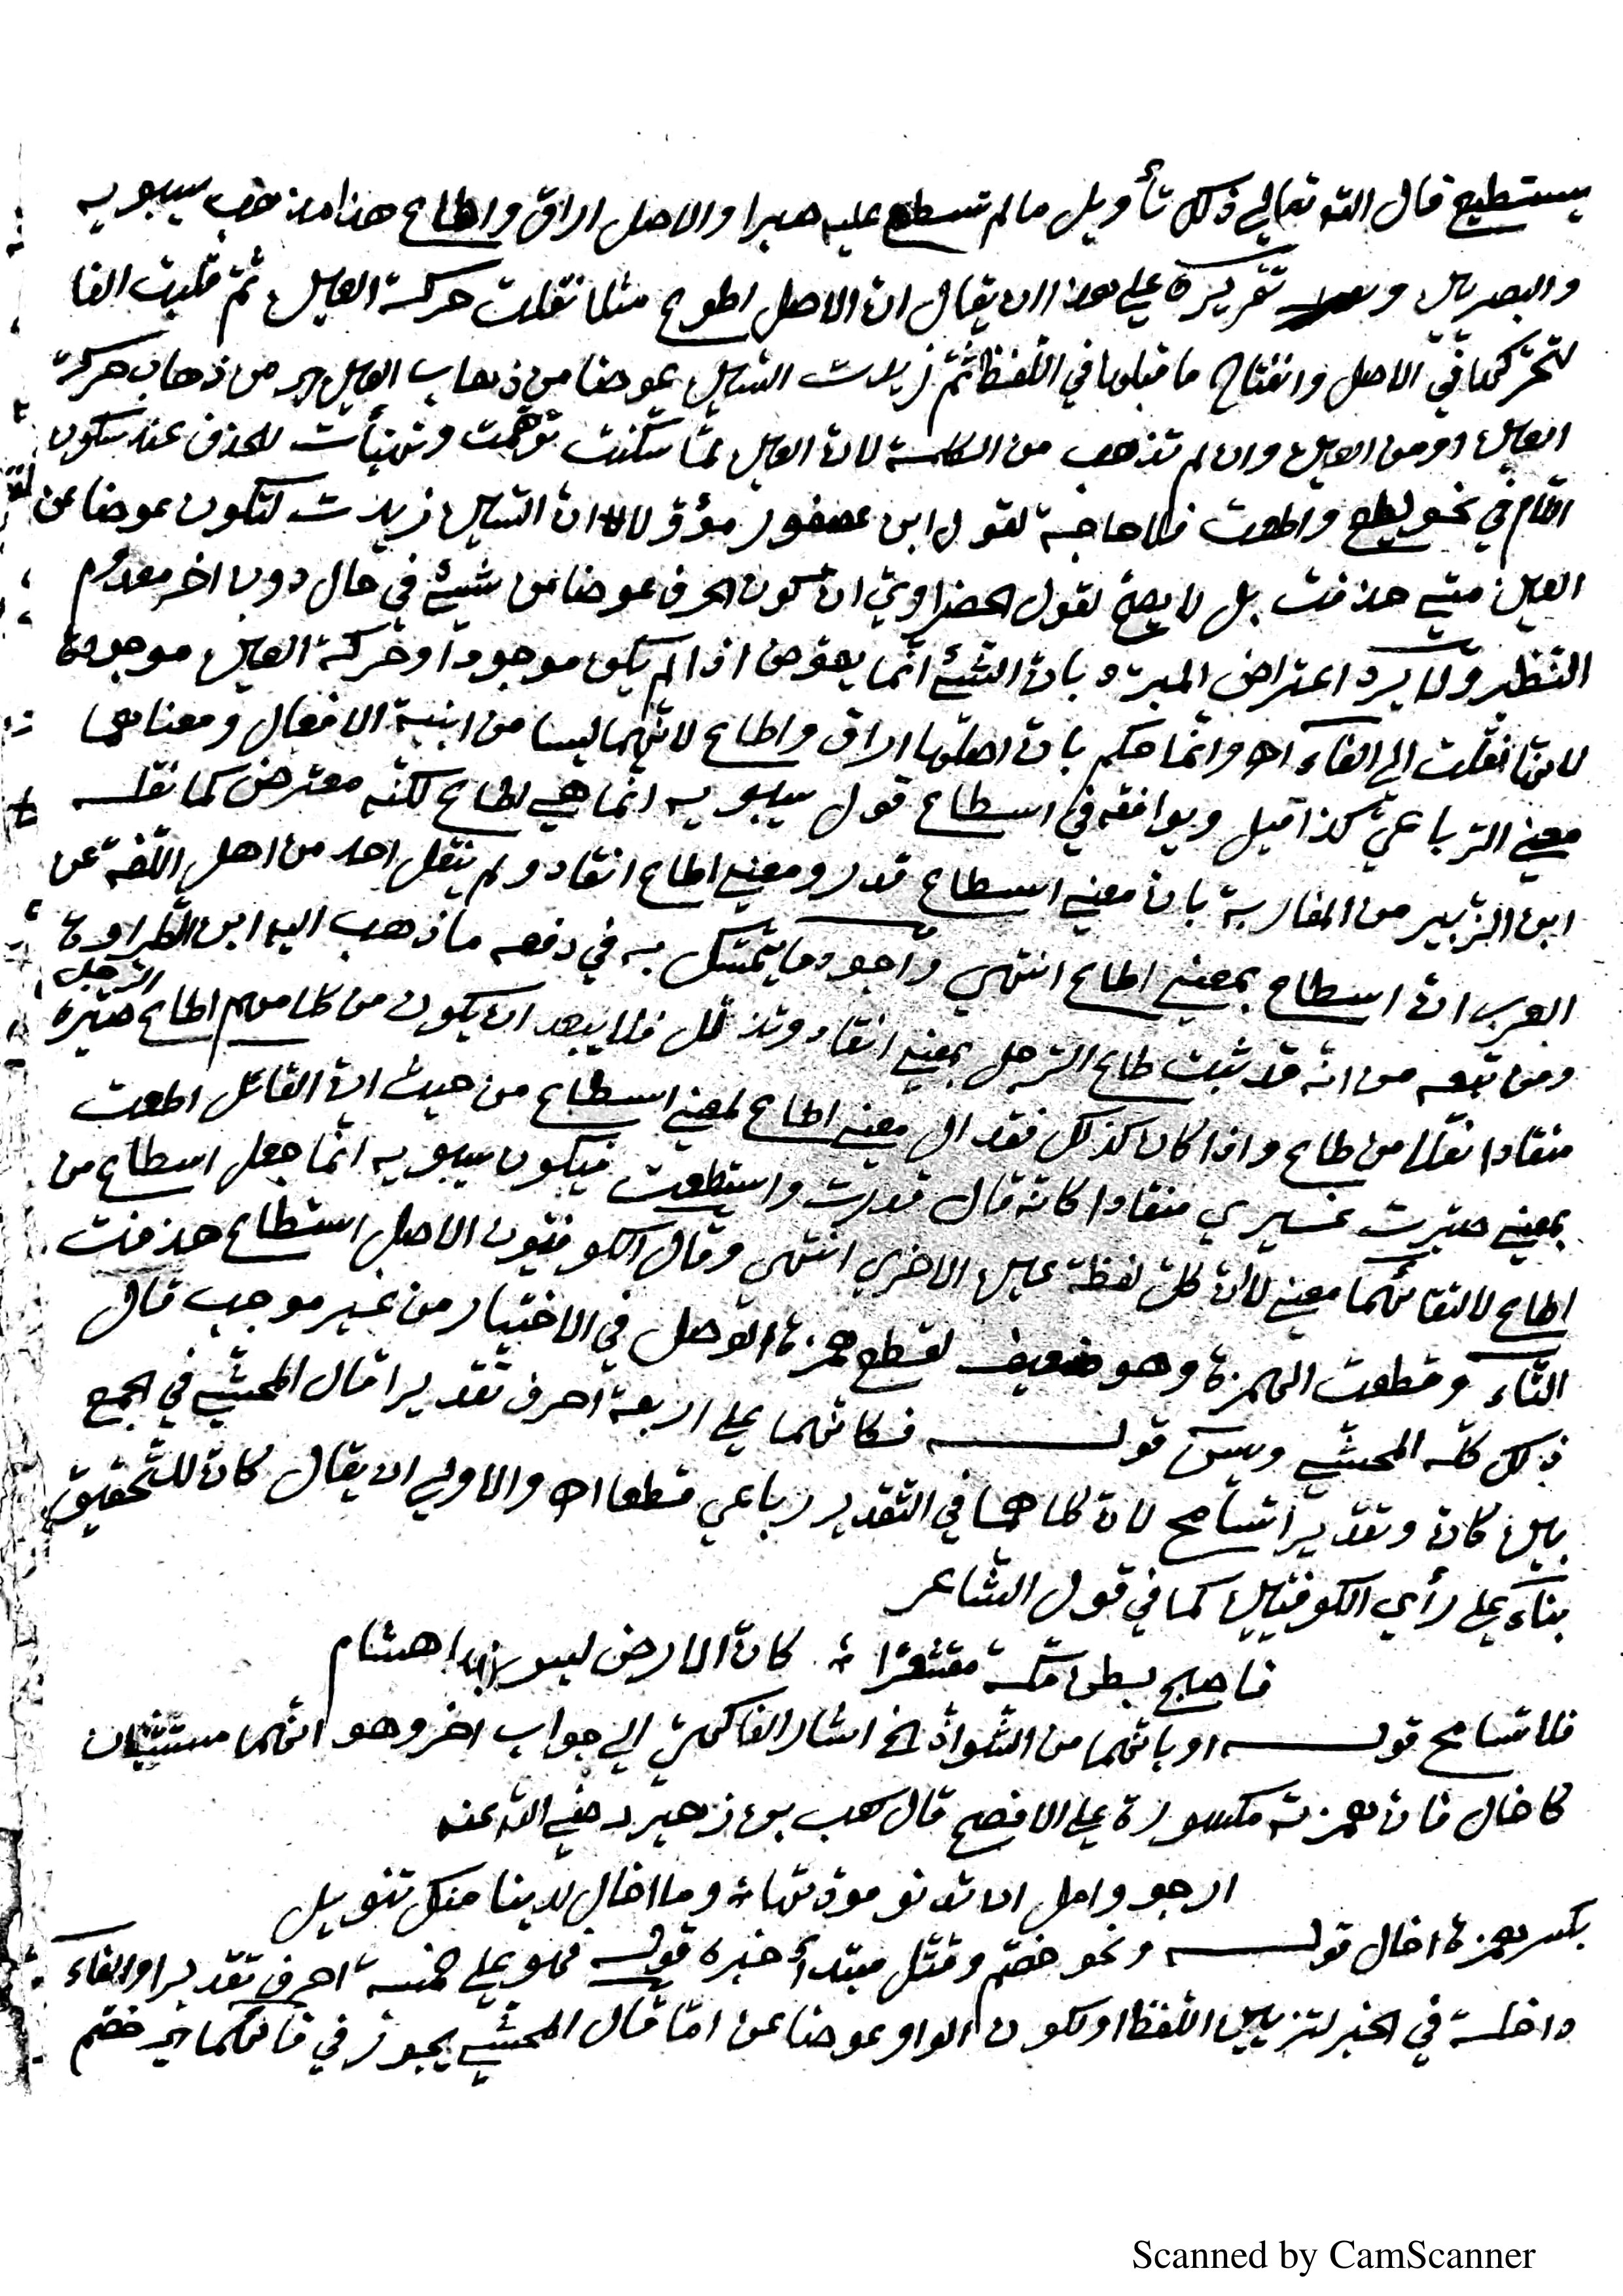 يستطيع قال الله تعالي ذلك تأويل مالم تسطع عليه صبرا والاصل اراق واطاع هذا مذهب سيبويه
والبصريين و تقريره علي هذا ان يقال ان الاصل اطوع مثلا نقلت حركة العين ثم قلبت الفا
لتحركها في الاصل وانفتاح ما قبلها في اللفظ ثم زيدت السين عوضا من ذهاب العين اي من ذهاب حركة
العين او من العين وان لم تذهب من الكلمة لان العين لما سكنت توهمت وتهيأت للحذف عند سكون
اللام في نحو يطع واطعت فلا حاجة لقول ابن عصفور مؤولا ان السين زيدت لتكون عوضا من
العين متي حذفت بل لا يصح لقول الخضراوي ان كون الحرف عوضا من شيئ في حال دون اخر معدوم
النظير ولا يرد اعتراض المبرد بان الشيئ انما يعوض اذا لم يكن موجودا وحركة العين موجودة
لانها نقلت الي الفاء اه وانما حكم بان اصلها اراق واطاع لانهما ليسا من ابنية الافعال ومعناهما
معني الرباعي كذا قيل ويوافقه في اسطاع قول سيبويه انما هي اطاع لكنه معترض كما نقله
ابن الزبير من المغاربة بان معني اسطاع قدر ومعني اطاع انقاد ولم ينقل احد من اهل اللغة عن
العرب ان اسطاع بمعني اطاع انتهي واجود ما يتمسك به في دفعه ما ذهب اليه ابن الطراوة
ومن تبعه من انه قد ثبت طاع الرجل بمعني انقاد وتذلل فلا يبعد ان يكون من كلامهم اطاع الرجل صيره
منقادا نقلا من طاع واذا كان كذلك فقد ال معني اطاع لمعني اسطاع من حيث ان القائل اطعت
بمعني صيرت غيري منقادا كانه قال قدرت واستطعت فيكون سيبويه انما جعل اسطاع من
اطاع لالتقائهما معني لا ان كل لفظة عين الاخري انتهي وقال الكوفيون الاصل استطاع حذفت
التاء وقطعت الهمزة وهو ضعيف لقطع همزة الوصل في الاختيار من غير موجب قال
ذلك كله المحشي ويس قوله فكانهما علي اربعة احرف تقديرا قال المحشي في الجمع
بين كان وتقديرا تسامح لان كلاهما في التقدير رباعي قطعا اه والاولي ان يقال كان للتحقيق
بناء علي رأي الكوفيين كما في قول الشاعر
فاصبح بطن مكة مقشعرا كان الارض ليس بها هشام
فلا تسامح قوله او بانهما من الشواذ الخ اشار الفاكهي الي جواب اخر وهو انهما مستثنيان
كاخال فان همزته مكسورة علي الافصح قال كعب بن زهير رضي الله عنه
ارجو وامل ان تدنو مودتها وما اخال لدينا منك تنويل
بكسر همزة اخال قوله ونحو خصم وقتل مبتدأ خبره قوله فهو علي خمسة احرف تقديرا والفاء
داخلة في الخبر لتزيين اللفظ او لكون الواو عوضا عن اما قال المحشي يجوز في فائهما اي خصم